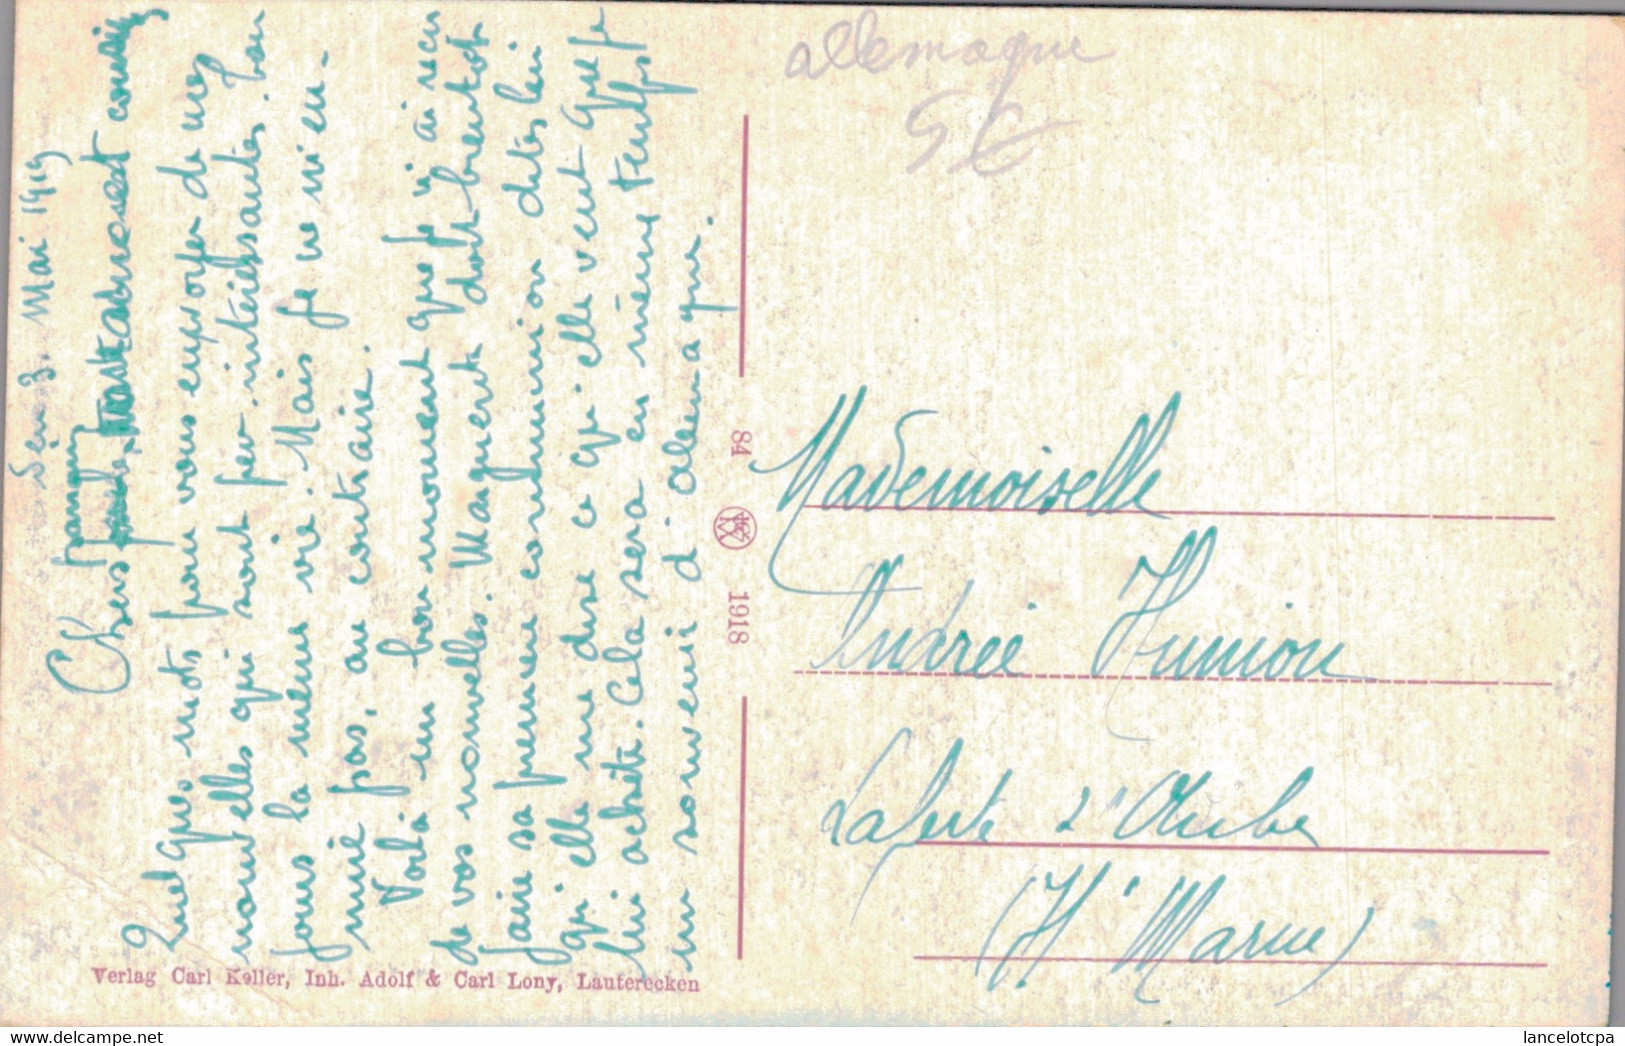 3 Mai 1919
Chers
Quelques mots pour vous envoyer de mes
nouvelles qui sont peu intéressantes. Tou
jours la même vie. Mais je ne m'en-
nuie pas, au contraire.
Voilà un bon moment que je n'ai reçu
de vos nouvelles. Marguerite doit bientôt
faire sa première communion dites lui
qu'elle me dise ce qu'elle veut que je
lui achète. Cela sera en même temps
un souvenir d'alemagne.
Verlag Carl Keller, Inh. Adolf & Carl Lony, Lauterecken
84
1918
allemagne
5€
Mademoiselle
Andrée Humiou
Laferte s/ Aube
(Hte Marne)
lancelotcpa
https://www.delcampe.net